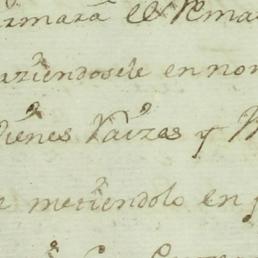 firmara el Rema
aziendosele en nom
vienes Raizes y M
e metiendolo en p